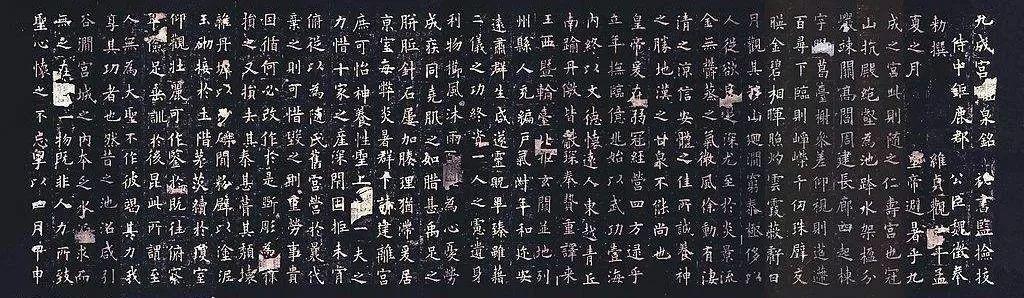 九成宮泉銘 書監檢校
侍中鉅鹿郡公臣魏徵奉
勅撰 維貞觀年孟
夏之月 帝避暑乎九
成之宮此則隨之仁壽宮也冠
山抗殿絕壑為池跨水架楹分
巖竦闕高閣周建長廊四起棟
宇膠葛臺榭參差仰視則迢遰
百尋下臨則崢嶸千仞珠璧交
映金碧相暉照灼雲霞蔽虧日
月觀其移山迴澗窮泰極侈以
人從欲良足深尤至於炎景流
金無鬱蒸之氣微風徐動有淒
清之涼信安體之佳所誠養神
之勝地漢之甘泉不能尚也
皇帝爰在弱冠經營四方逮乎
立年撫臨億兆始以武功壹海
內終以文德懷遠人東越青丘
南踰丹儌皆獻琛奉贄重譯來
王西暨輪臺北拒玄闕並地列
州縣人充編戶氣淑年和邇安
遠肅群生咸遂靈貺畢臻雖藉
二儀之功終資一人之慮遺身
利物櫛風沐雨為心憂勞
成疾同堯肌之如腊甚禹足之
胼胝針石屢加腠理猶滯爰居
京室每弊炎暑群下請建離宮
庶可怡神養性聖上一夫之
力惜十家之產深閉固拒未肯
俯從以為隨氏舊宮營於曩代
棄之則可惜毀之則重勞事貴
因循何必改作於是斲彫為
損之又損去其泰甚葺其頹壞
雜丹墀以沙礫間粉壁以塗泥
玉砌接於土階茅茨續於瓊室
仰觀壯麗可作鑒於既往俯察
卑儉足垂訓於後昆此所謂至
人無為大聖不作彼竭其力我
享其功者也然昔之池沼咸引
谷澗宮城之內本乏水源求而
無之在乎一物既非人力所致
聖心懷之不忘粵以四月甲申